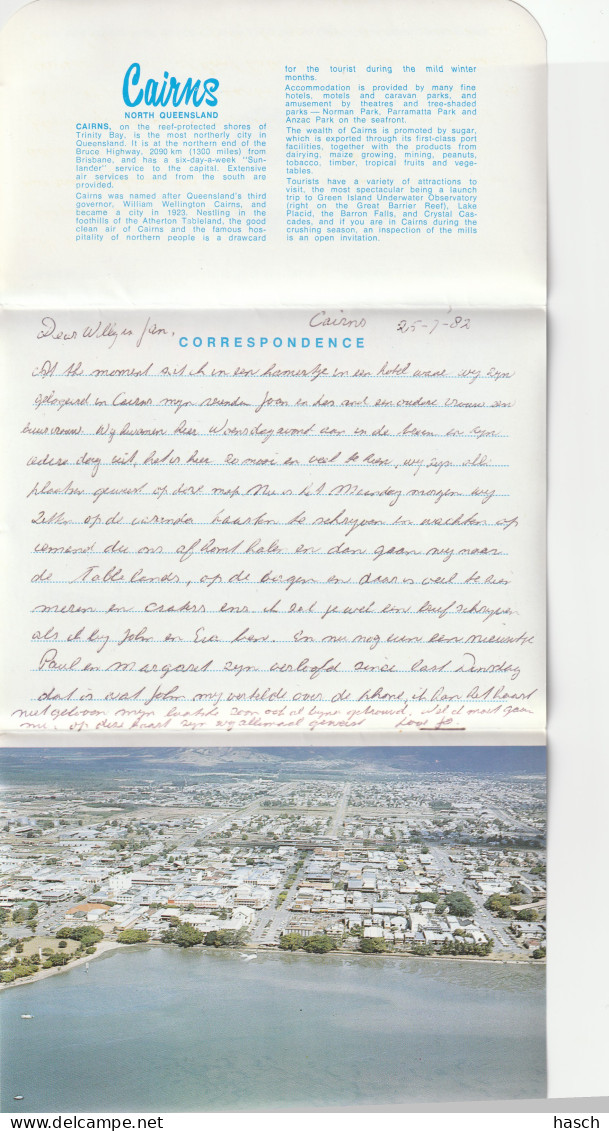 Cairns
NORTH QUEENSLAND
CAIRNS, on the reef-protected shores of
Trinity Bay, is the most northerly city in
Queensland. It is at the northern end of the
Bruce Highway, 2090 km (1300 miles) from
Brisbane, and has a six-day-a-week "Sun-
lander" service to the capital. Extensive
air services to and from the south are
provided.
Cairns was named after Queensland's third
governor, William Wellington Cairns, and
became a city in 1923. Nestling in the
foothills of the Atherton Tableland, the good
clean air of Cairns and the famous hos-
pitality of northern people is a drawcard
for the tourist during the mild winter
months.
Accommodation is provided by many fine
hotels, motels and caravan parks, and
amusement by theatres and tree-shaded
parks — Norman Park, Parramatta Park and
Anzac Park on the seafront.
The wealth of Cairns is promoted by sugar,
which is exported through its first-class port
facilities, together with the products from
dairying, maize growing, mining, peanuts,
tobacco, timber, tropical fruits and vege-
tables.
Tourists have a variety of attractions to
visit, the most spectacular being a launch
trip to Green Island Underwater Observatory
(right on the Great Barrier Reef), Lake
Placid, the Barron Falls, and Crystal Cas-
cades, and if you are in Cairns during the
crushing season, an inspection of the mills
is an open invitation.
Cairns 25-7-82
Dear Willy en
CORRESPONDENCE
At the moment zit ik in een kamertje in een hotel waar wy zyn
gelogeerd in Cairns myn Joan en en een oudere vrouw een
buurvrouw. Wy kwamen hier Woensdagavont aan in de en zyn
iedere dag uit, het is hier zo mooi en veel te zien, wy zyn alle
plaatsen geweest op deze map Nu is het Maandag morgen wy
zitten op de varenda kaarten te schryven en wachten op
iemand die ons af komt halen en dan gaan wy naar
de Tablelands, op de bergen en daar is veel te zien
meren en craters enz. ik zal je wel een brief schryven
als ik by John en Eva ben. En nu nog een een nieuwtje
Paul en Margaret zyn verloofd since last Dinsdag
dat is wat John my vertelde over de phone, ik kan het haast
niet geloven myn laatste zoon ook al byna getrouwd, wel ik moet gaan
nu, op deze kaart zyn wy allemaal geweest love Jo.
hasch